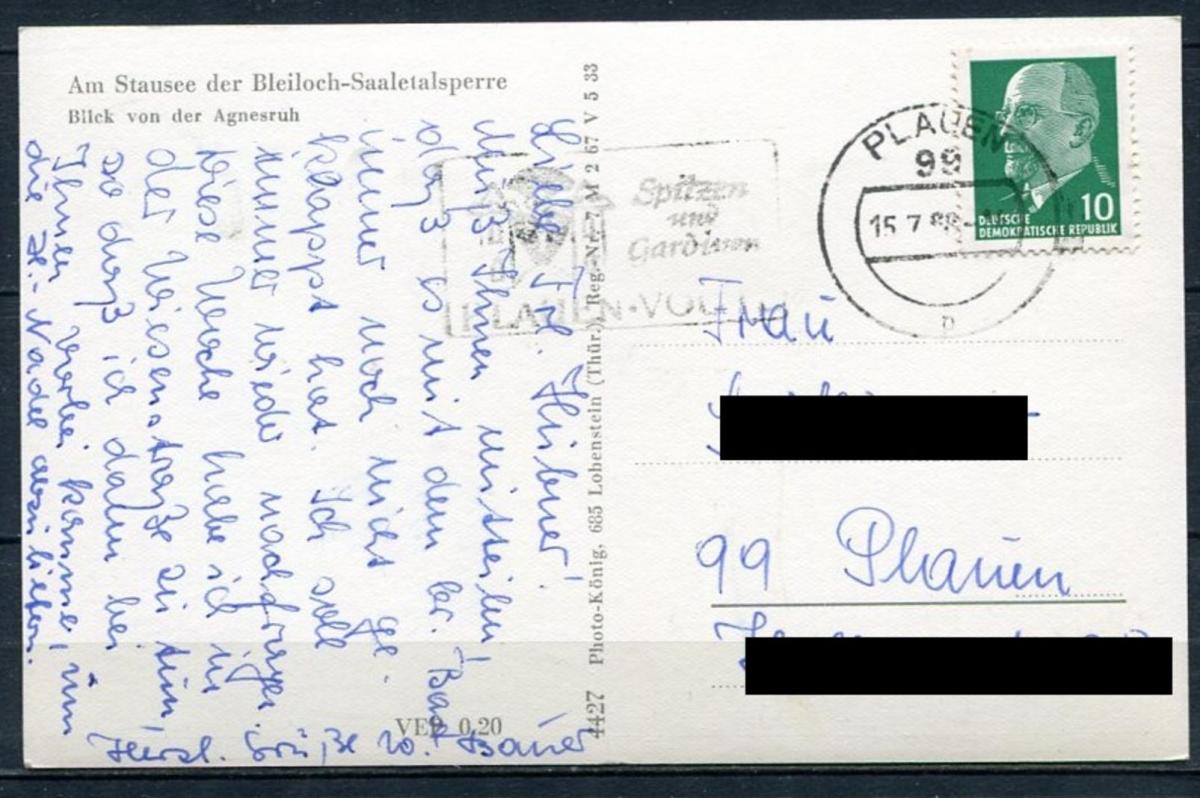 Am Stausee der Bleiloch-Saaletalsperre
Blick von der Agnesruh
Liebe Frl. Hübner!
Muß Ihnen mitteilen,
daß es mit dem
immer noch nicht ge-
klappt hat. Ich soll
immer wieder nachfragen.
Diese Woche habe ich in
der Weisenstraße zu tun
so daß ich dann bei
Ihnen vorbei komme, um
die Nadel abzuliefern.
Herzl. Grüße Bauer
VEB 0,20
4427 Photo-König, 685 Lobenstein (Thür.) Reg.-Nr. 4-7 M 2 67 V 5 33
Spitzen
und
Gardinen
PLAUEN·VOGTL
PLAUEN
99
15.7
DEUTSCHE
DEMOKRATISCHE REPUBLIK
10
Frau
99 Plauen